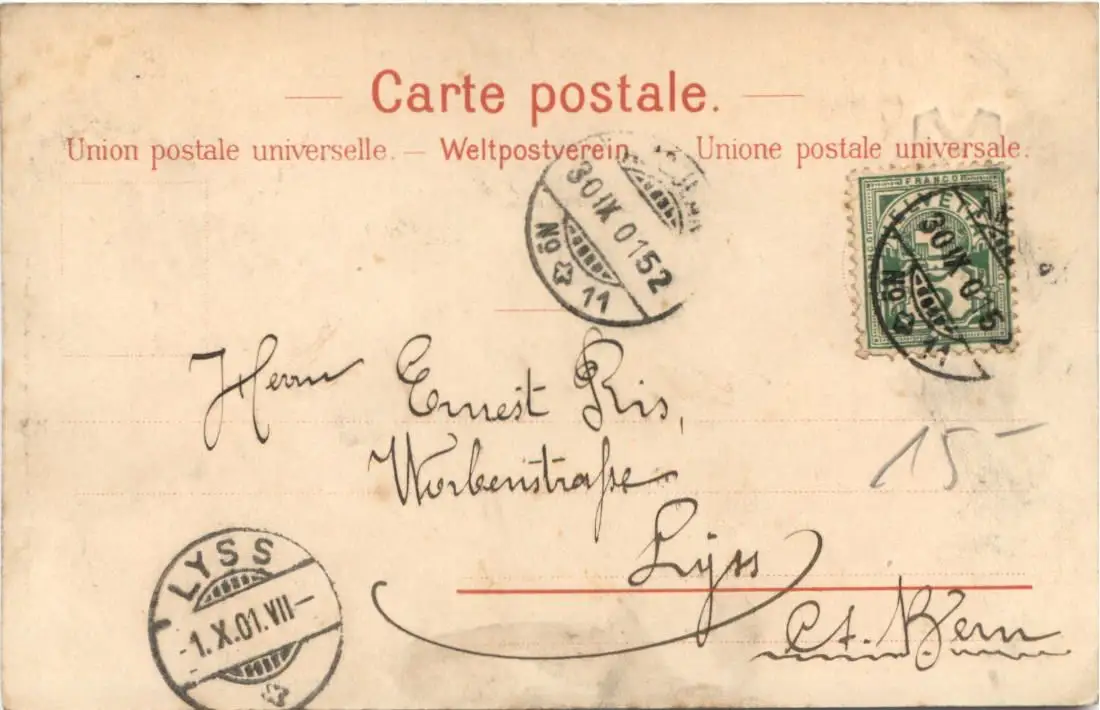 Carte postale.
Union postale universelle. — Weltpostverein — Unione postale universale.
30 IX 01 52
No 11
FRANCO
HELVETIA
30 IX 01 5
No 11
Herrn Ernest Ris,
Worbenstraße
Lyss
Ct. Bern
15-
LYSS
-1.X.01.VII-